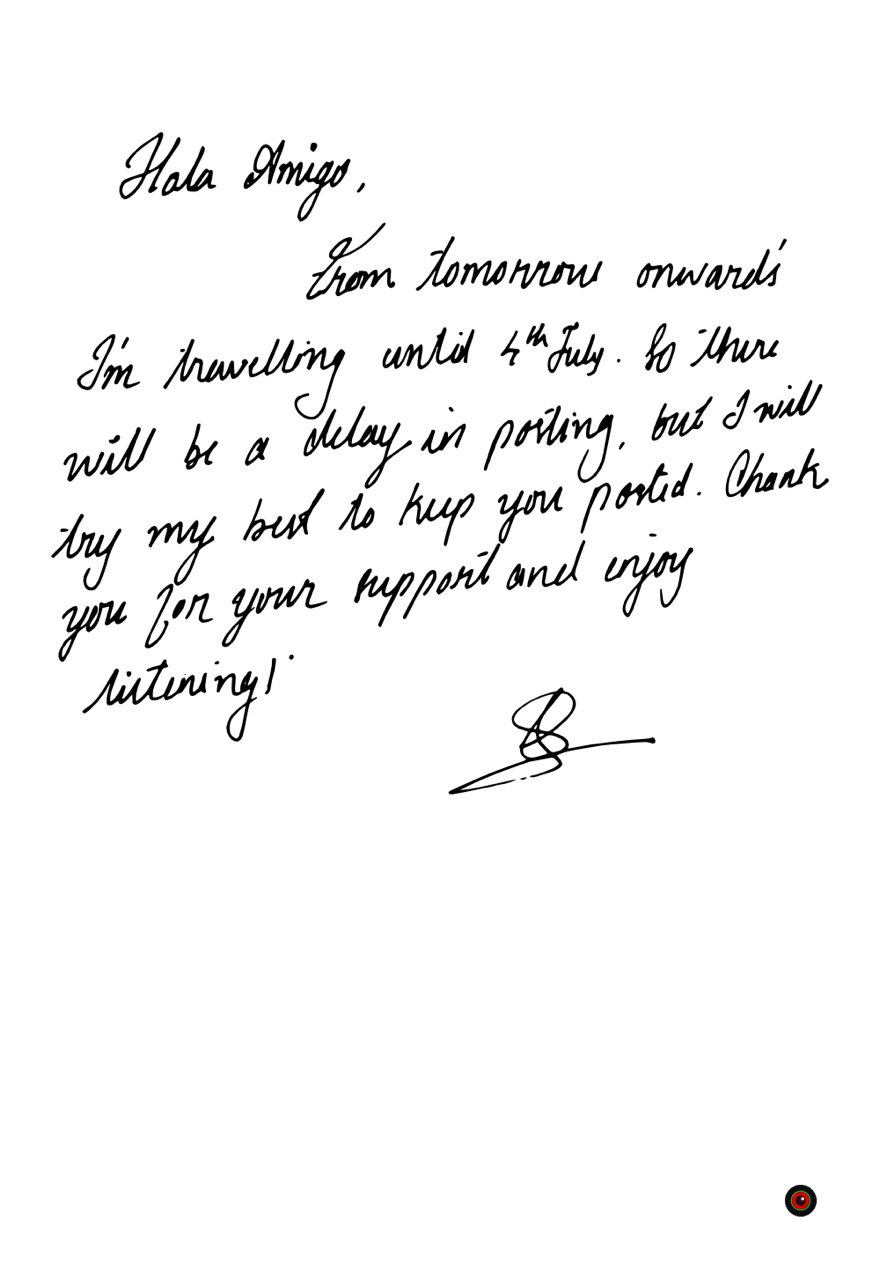 Hola Amigo,
From tomorrow onwards
I'm travelling until 4th July. So there
will be a delay in posting, but I will
try my best to keep you posted. Thank
you for your support and enjoy
listening!